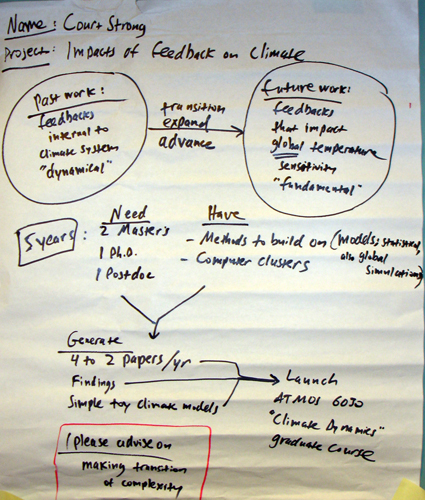 Name: Court Strong
Project: Impacts of feedback on Climate
Past work:
feedbacks
internal to
climate system
"dynamical"
transition
expand
advance
Future work:
feedbacks
that impact
global temperature
sensitivity
"fundamental"
5 years:
Need
2 Master's
1 Ph.D.
1 Postdoc
Have
- Methods to build on (models: statistical,
also global
simulations)
- Computer clusters
Generate
4 to 2 papers/yr
Findings
Simple toy climate models
Launch
ATMOS 6030
"Climate Dynamics"
graduate course
please advise on
making transition
of complexity